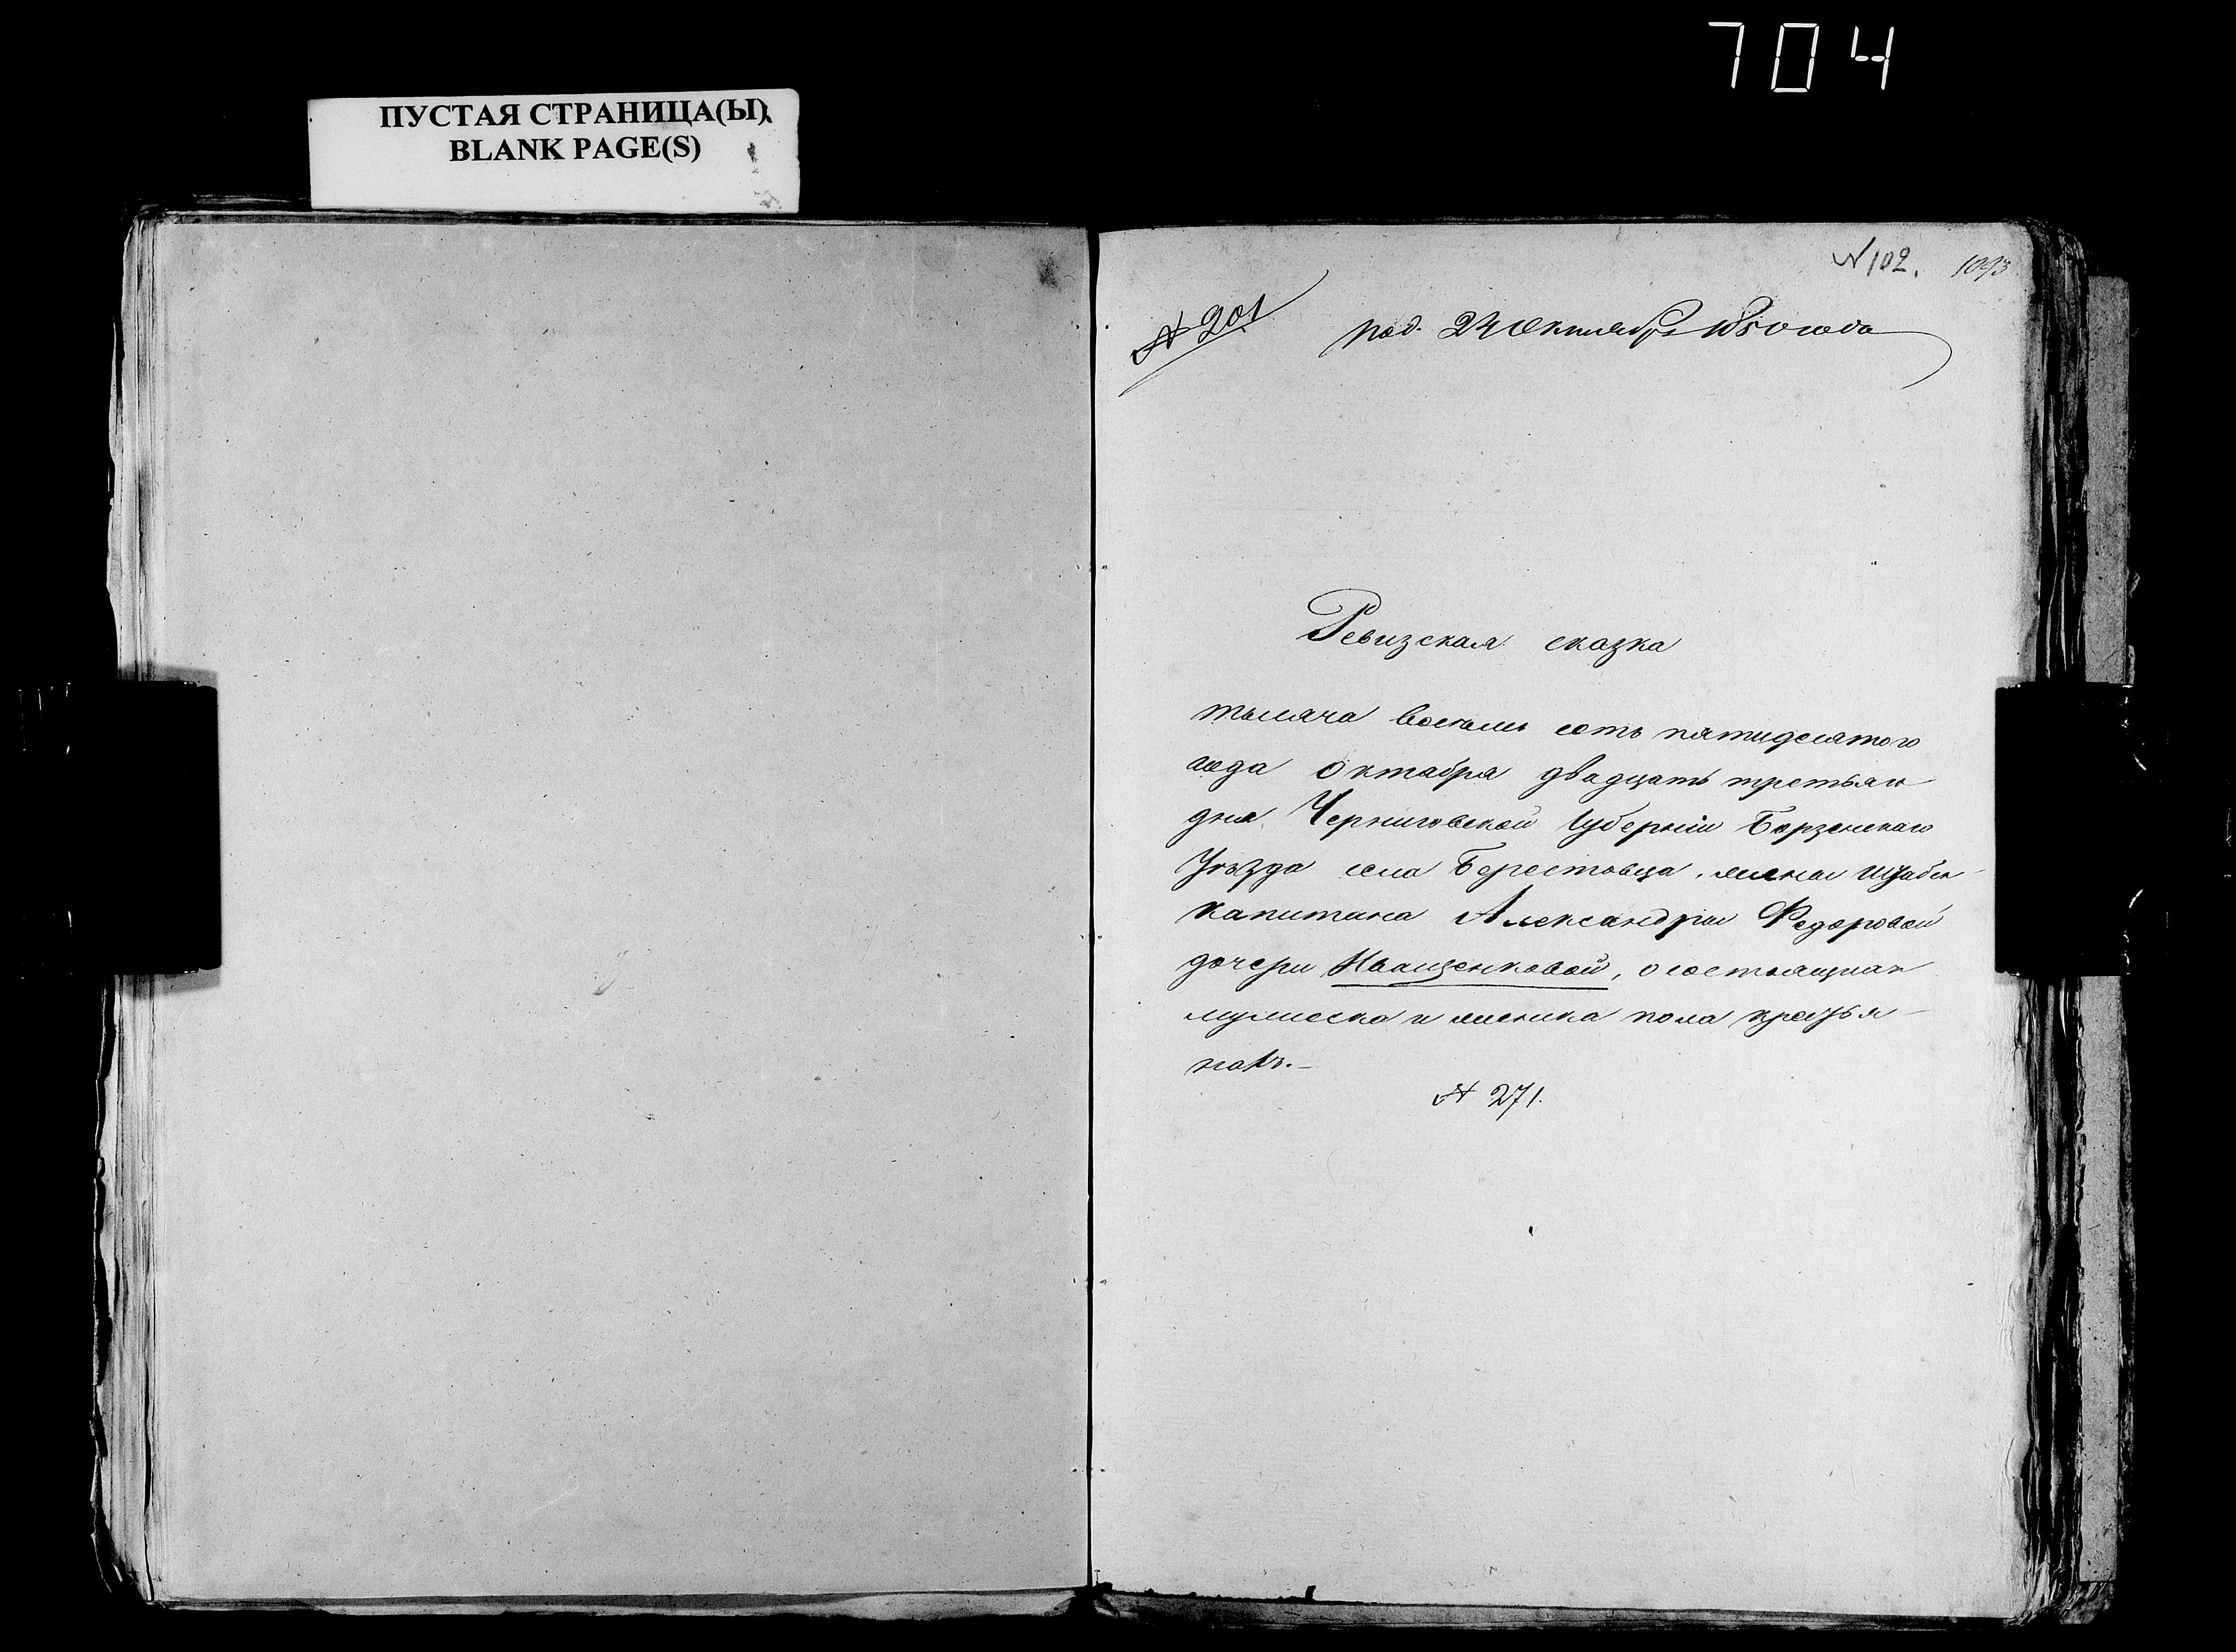 704
ПУСТАЯ СТРАНИЦА(Ы)
BLANK PAGE(S)
№ 102. 1093
№ 201
под. 24 Октября 1850 года
Ревизская сказка
тысяча восемь сотъ пятидесятого
года Октября двадцать третьяго
дня Черниговской Губерніи Борзенскаго
Уѣзда села Берестовца, жены Штабсъ
капитана Александры Федоровой
дочери Иващенковой, о состоящихъ
мужеска и женска пола крестья
нахъ.—
№ 271.